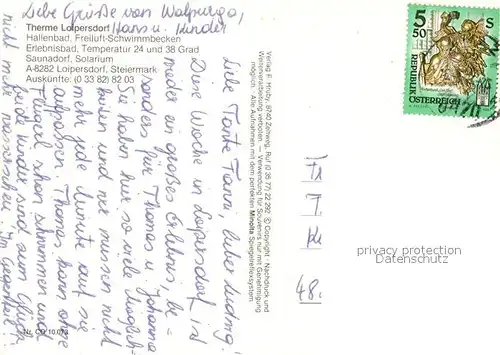 Liebe Grüße von Walpurga,
Hans u. Kinder
Therme Loipersdorf
Hallenbad, Freiluft-Schwimmbecken
Erlebnisbad, Temperatur 24 und 38 Grad
Saunadorf, Solarium
A-8282 Loipersdorf, Steiermark
Auskünfte: (0 33 82) 82 03
Liebe Tante Fanni, lieber Ludwig!
Diese Woche in Loipersdorf ist
wieder ein großes Erlebnis, be-
sonders für Thomas u. Johanna
Sie haben hier so viele Möglich-
keiten und wir müssen nicht
mehr jede Minute auf sie
aufpassen. Thomas kann ohne
Flügerl schon schwimmen und
beide Kinder sind zum Glück
nicht mehr wasserscheu, im Gegenteil!
Verlag F. Hruby, 8740 Zeltweg, Ruf (0 35 77) 22 292 © Copyright · Nachdruck und
Weiterverarbeitung verboten. — Verwendung für Souvenirs nur mit Genehmigung
möglich. · Alle Aufnahmen mit dem perfekten Minolta Spiegelreflexsystem.
Nr. CO 10.073
5 50 S
REPUBLIK
ÖSTERREICH
48.
privacy protection
Datenschutz